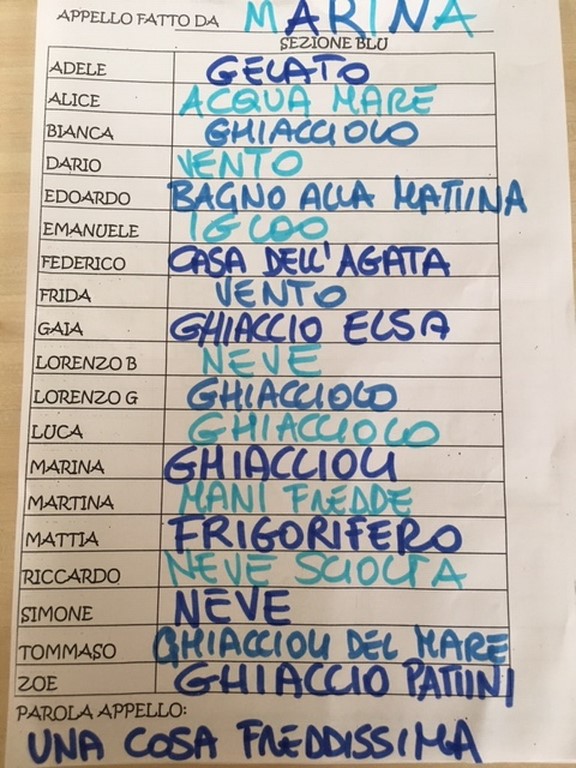 APPELLO FATTO DA MARINA
SEZIONE BLU
ADELE GELATO
ALICE ACQUA MARE
BIANCA GHIACCIOLO
DARIO VENTO
EDOARDO BAGNO ALLA MATTINA
EMANUELE IGLOO
FEDERICO CASA DELL'AGATA
FRIDA VENTO
GAIA GHIACCIO ELSA
LORENZO B NEVE
LORENZO G GHIACCIOLO
LUCA GHIACCIOLO
MARINA GHIACCIOLI
MARTINA MANI FREDDE
MATTIA FRIGORIFERO
RICCARDO NEVE SCIOLTA
SIMONE NEVE
TOMMASO GHIACCIOLI DEL MARE
ZOE GHIACCIO PATTINI
PAROLA APPELLO:
UNA COSA FREDDISSIMA